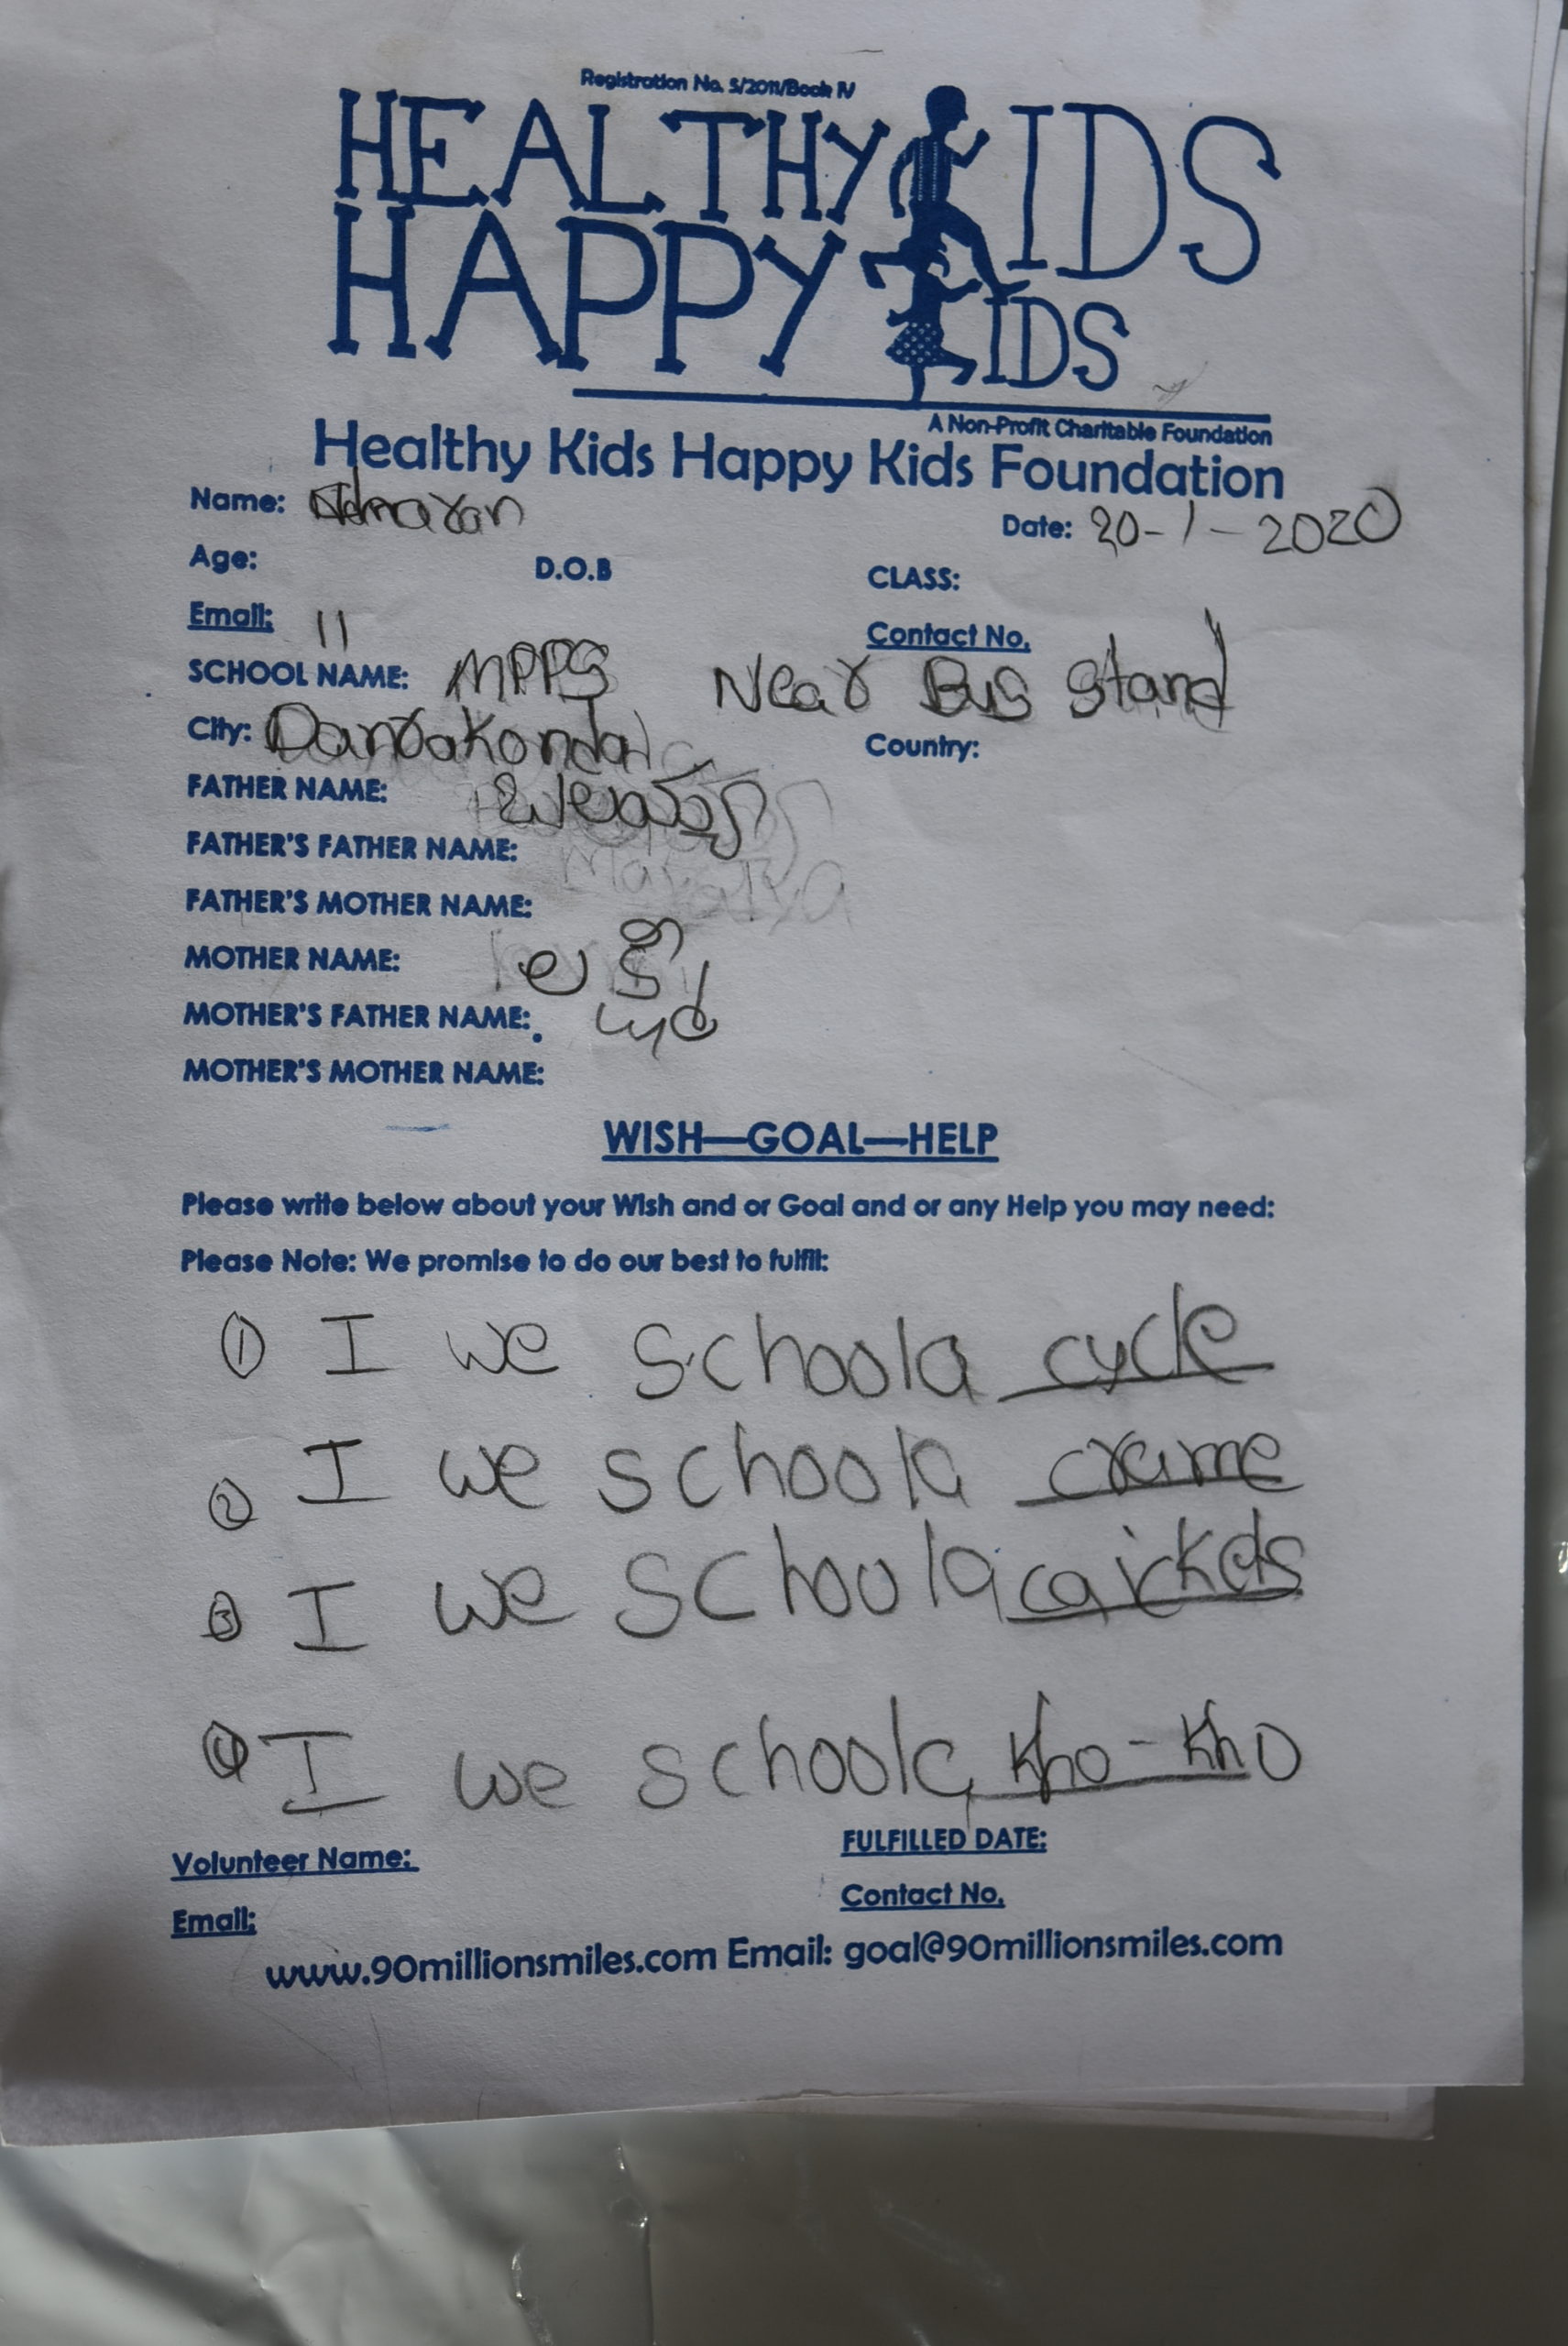 Registration No. 5/2011/Book IV
HEALTHY KIDS
HAPPY KIDS
A Non-Profit Charitable Foundation
Healthy Kids Happy Kids Foundation
Name:
Date: 20-1-2020
Age: D.O.B CLASS:
Email: 11 Contact No.
SCHOOL NAME: MPPS Near Bus Stand
City: Darsakonda Country:
FATHER NAME:
FATHER'S FATHER NAME:
FATHER'S MOTHER NAME:
MOTHER NAME: లక్ష్మి
MOTHER'S FATHER NAME:
MOTHER'S MOTHER NAME:
WISH—GOAL—HELP
Please write below about your Wish and or Goal and or any Help you may need:
Please Note: We promise to do our best to fulfil:
① I we schoola cycle
② I we schoola
③ I we schoola
④ I we school Kho-Kho
Volunteer Name: FULFILLED DATE:
Email: Contact No.
www.90millionsmiles.com Email: goal@90millionsmiles.com